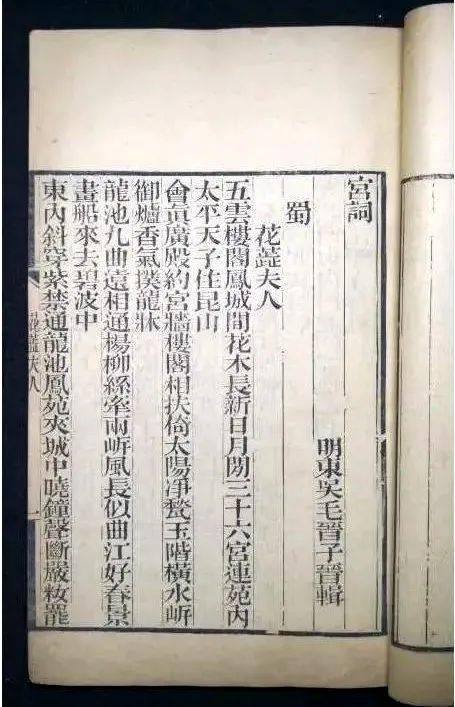 宮詞
明東吳毛晉子晉輯
蜀
花蕋夫人
五雲樓閣鳳城間花木長新日月閒三十六宮連苑內
太平天子住昆山
會眞廣殿約宮牆樓閣相扶倚太陽淨甃玉階橫水岸
御爐香氣撲龍牀
龍池九曲遠相通楊柳絲牽兩岸風長似曲江好春景
畫船來去碧波中
東內斜穿紫禁通龍池鳳苑夾城中曉鐘聲斷嚴粧罷
花蕋夫人
一